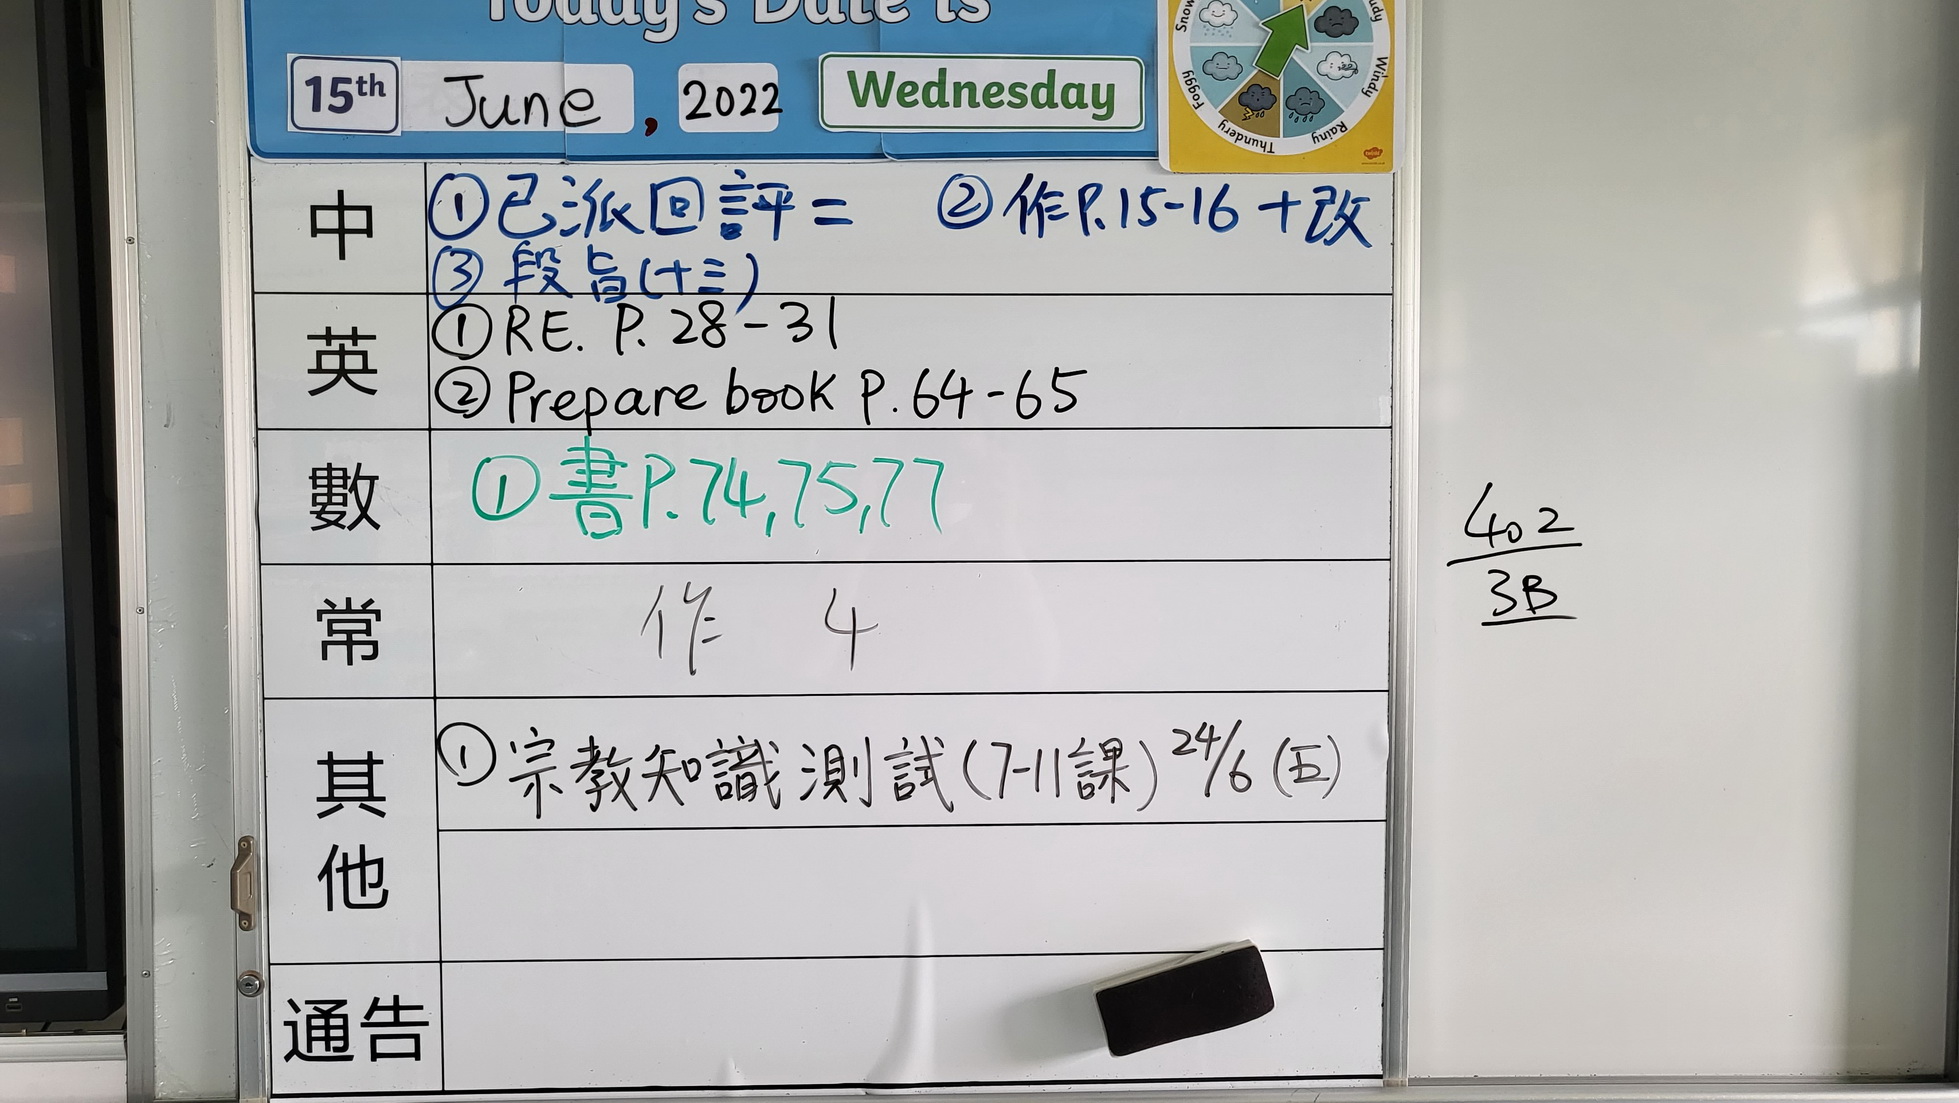 Today's Date is
15th June, 2022 Wednesday
Snow
Foggy
Thundery
Rainy
Windy
中 ①已派回評二 ②作P.15-16+改
③段旨(十三)
英 ①RE. P. 28-31
②Prepare book P.64-65
數 ①書P.74,75,77
常 作 4
其他 ①宗教知識測試(7-11課) 24/6 (五)
通告
402
3B